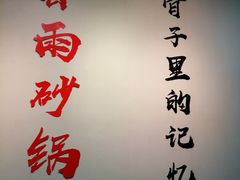 雨砂锅
骨子里的记忆